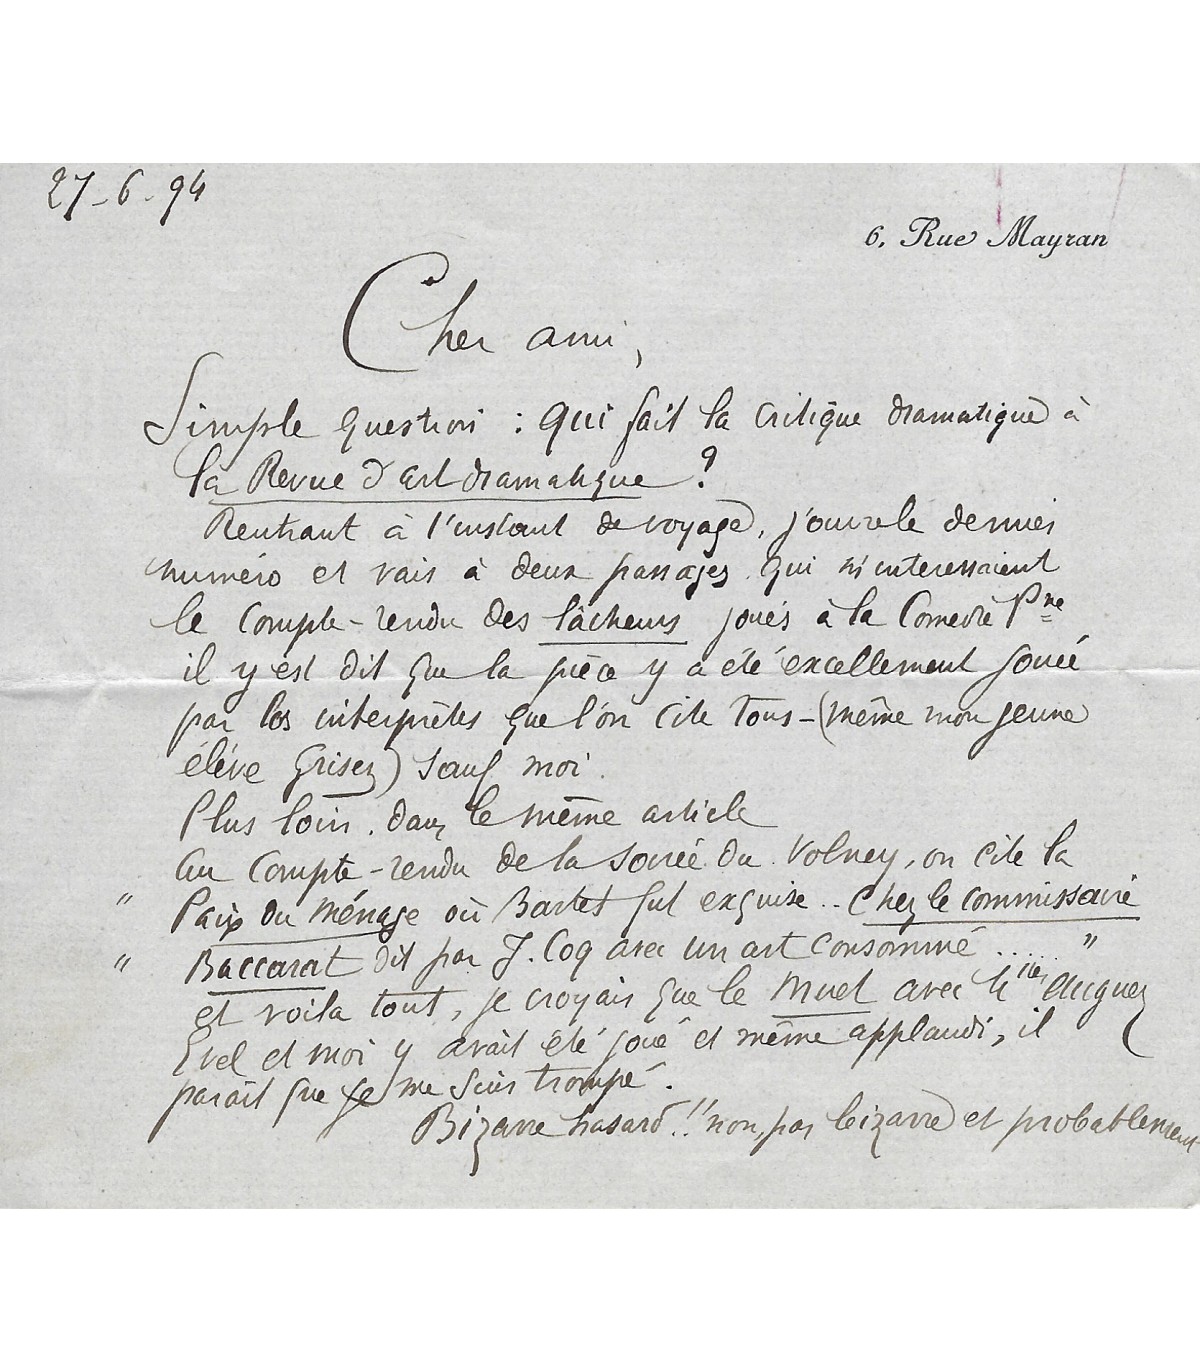 27-6-94
6, Rue Mayran
Cher ami,
Simple question : qui fait la critique dramatique à
la Revue d'art dramatique ?
Rentrant à l'instant de voyage, j'ouvre le dernier
numéro et vais à deux passages qui m'interessaient
le compte-rendu des lâcheurs joués à la Comedie Pne
il y est dit que la pièce y a été excellement jouée
par les interprètes que l'on cite tous - (même mon jeune
élève Grisez) sauf moi.
Plus loin, dans le même article
au compte-rendu de la soirée du Volney, on cite la
" Paix du Ménage où Bartet fut exquise .. Chez le commissaire
" Baccarat dit par J. Coq avec un art consommé ...... "
et voila tout, je croyais que le Muet avec
et moi y avait été joué et même applaudi, il
parait que je me suis trompé.
Bizarre hasard !! non, pas bizarre et probablement